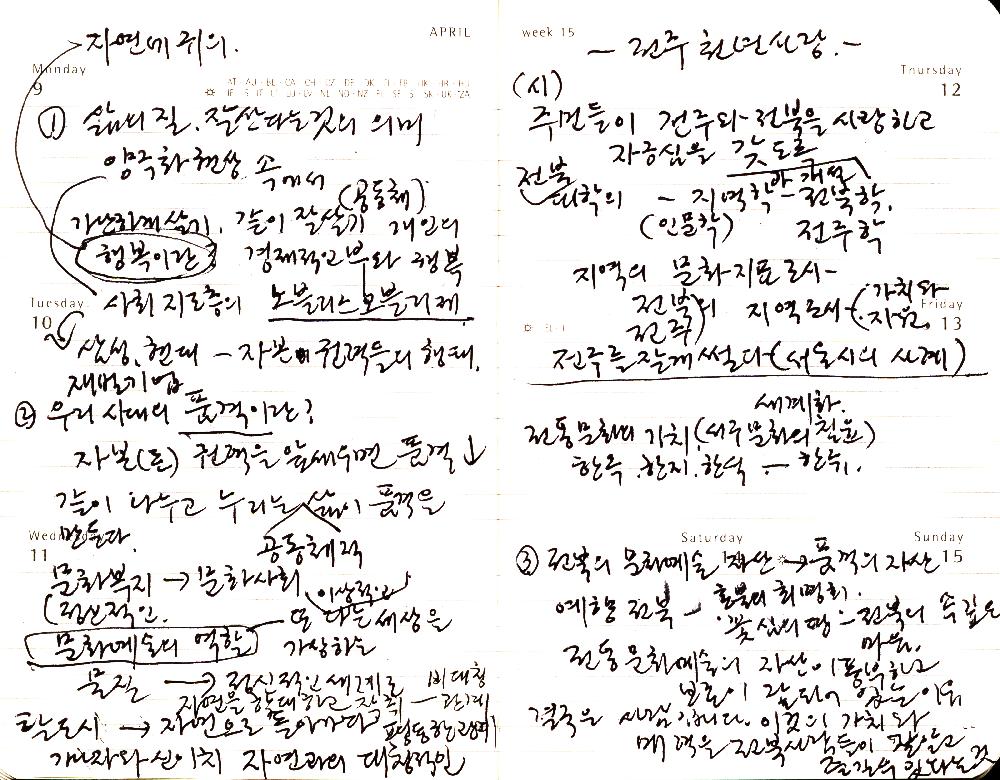 자연에 귀의.
APRIL
Monday
9
① 삶의 질. 잘 산다는 것의 의미
양극화 현상 속에서
(공동체)
가난하게 살기. 같이 잘살기 개인의
행복이란? 경제적인 부와 행복
사회 지도층의 노블리스 오블리제
Tuesday
10
삼성, 현대 - 자본 권력들의 행태.
재벌기업
② 우리 시대의 품격이란?
자본(돈) 권력을 앞세우면 품격↓
같이 나누고 누리는 삶이 품격을
만든다.
공동체적
Wednesday
11
문화복지 → 문화사회
(정신적인 이상적인
또 다른 세상을
문화예술의 역할 가상하는
물질 → 정신적인 세계로 비대칭
자연을 학대하고 관계
탈도시 → 자연으로 돌아가다 평등한 관계
개발자와 자연과의 대칭적인
week 15
- 전주 천년사랑. -
Thursday
12
(시)
주민들이 전주와 전북을 사랑하고
자긍심을 갖도록
전북 개설
대학의 - 지역학 - 전북학.
(인문학) 전주학
지역의 문화지표조사 -
전북의 지역조사 - (가치와
전주) 자원.
Friday
13
전주를 잘게 썰다 - (서울시의 사례)
세계화.
전통문화의 가치 (서구문화의 침윤)
한옥. 한지. 한식 -
Saturday
Sunday
15
③ 전북의 문화예술 자산 → 품격의 자산
예향 전북 - 혼불의 최명희.
· 꽃심의 땅 - 전북의 속 깊은
마음.
전통문화예술의 자산이 풍부하고
보존이 잘되어 있는 이유
결국은 사람입니다. 이것의 가치와
매력을 전북사람들이 잘 알고
즐길 수 있다는 것